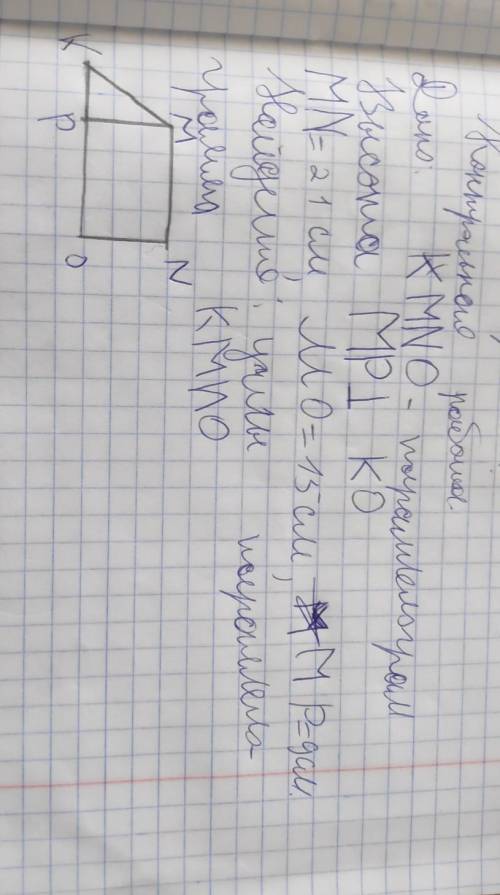 Контрольная работа
Дано: KMNO - параллелограм
Высота MP⊥ KO
MN = 21 см, NO = 15 см, MP = 9 см.
Найдите: углы параллело-
грамма KMNO
K
P
M
O
N